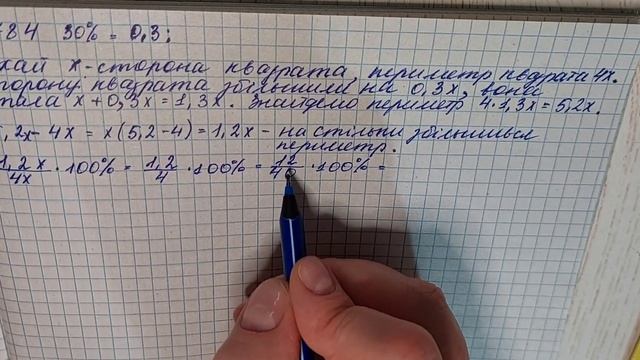 84 30% = 0,3;
хай x - сторона квадрата, периметр квадрата 4x.
торону квадрата збільшили на 0,3x, вона
тала x + 0,3x = 1,3x. Знайдемо периметр 4·1,3x = 5,2x.
,2x - 4x = x(5,2-4) = 1,2x - на стільки збільшився
периметр.
1,2x/4x · 100% = 1,2/4 · 100% = 12/40 · 100% =